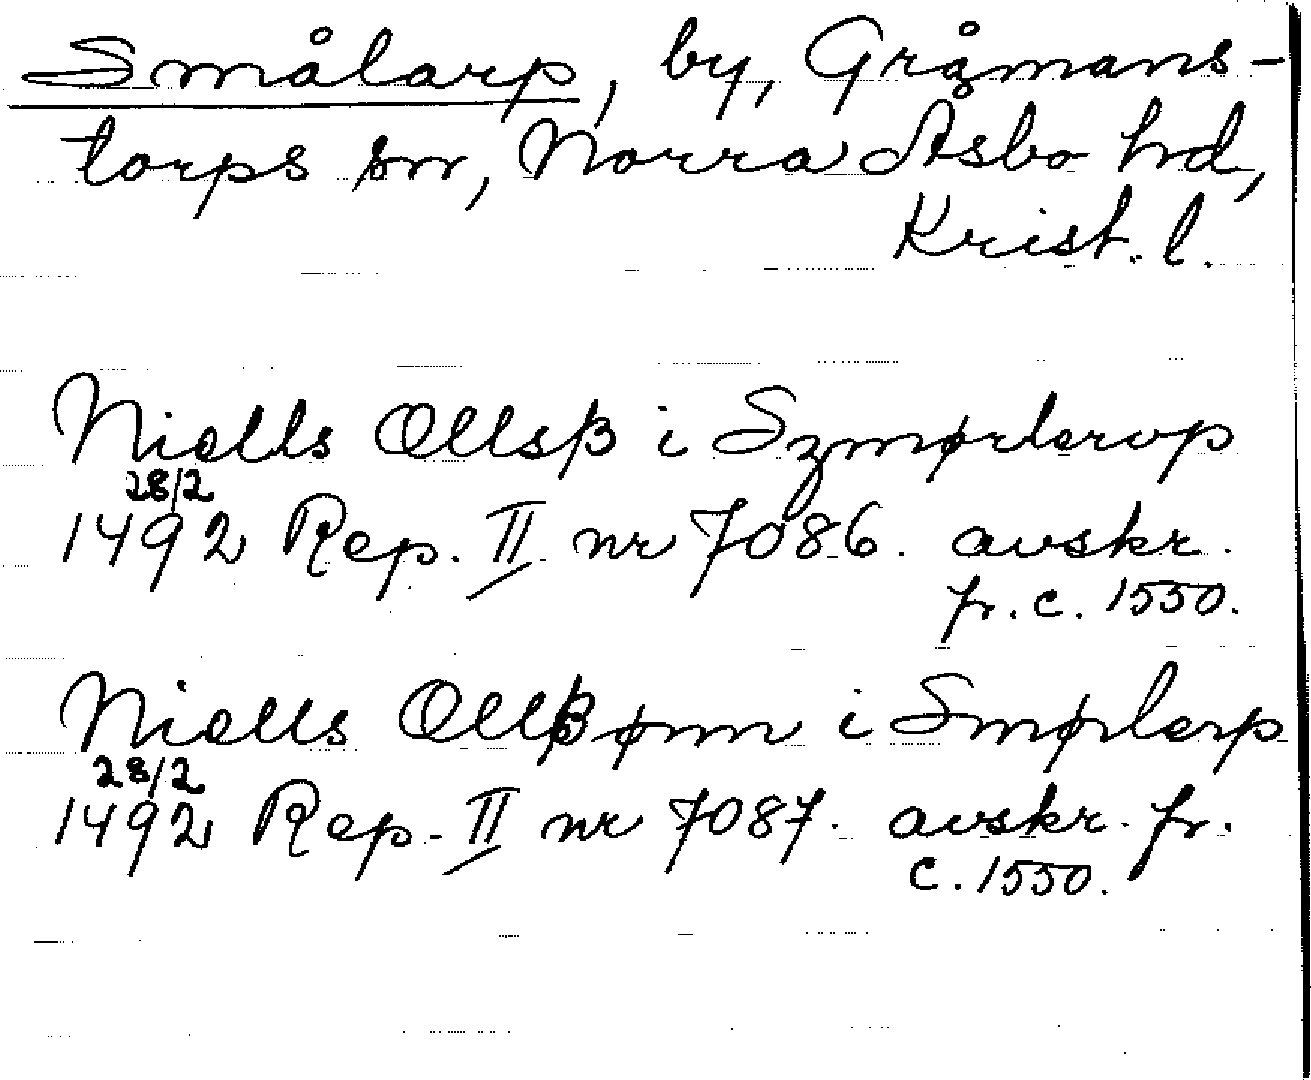 Smålarp, by, Gråmans-
torps sn, Norra Åsbo hd,
Krist. l.
Niells Ollsß i Szmørlerop
28/2
1492 Rep. II nr 7086. avskr.
fr. c. 1550.
Niells Ollßønn i Smørlerp
28/2
1492 Rep. II nr 7087. avskr. fr.
c. 1550.